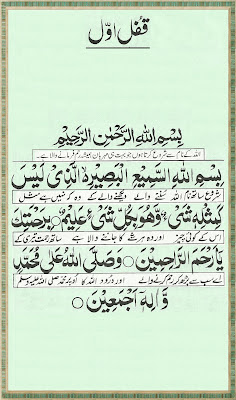 قفل اوّل
بِسْمِ اللّٰهِ الرَّحْمٰنِ الرَّحِيْمِ
اللہ کے نام سے شروع کرتا ہوں جو بہت ہی مہربان ہمیشہ رحم فرمانے والا ہے۔
بِسْمِ اللّٰهِ السَّمِيْعِ الْبَصِيْرِ الَّذِىْ لَيْسَ
شروع ساتھ نام اللہ سننے والے دیکھنے والے کے وہ کہ نہیں ہے مثل
كَمِثْلِهٖ شَىْءٌ وَهُوَ بِكُلِّ شَىْءٍ عَلِيْمٌ ○ بِرَحْمَتِكَ
اس کے کوئی چیز اور وہ ہر شے کا جاننے والا ہے ساتھ رحمت تیری کے
يَا رْحَمَ الرَّاحِمِيْنَ ○ وَصَلَّى اللّٰهُ عَلٰى مُحَمَّدٍ
اے سب سے بڑھ کر رحم کرنے والے اور درود اللہ کا اوپر محمد صلی اللہ علیہ وسلم
وَّاٰلِهٖ اَجْمَعِيْنَ ○